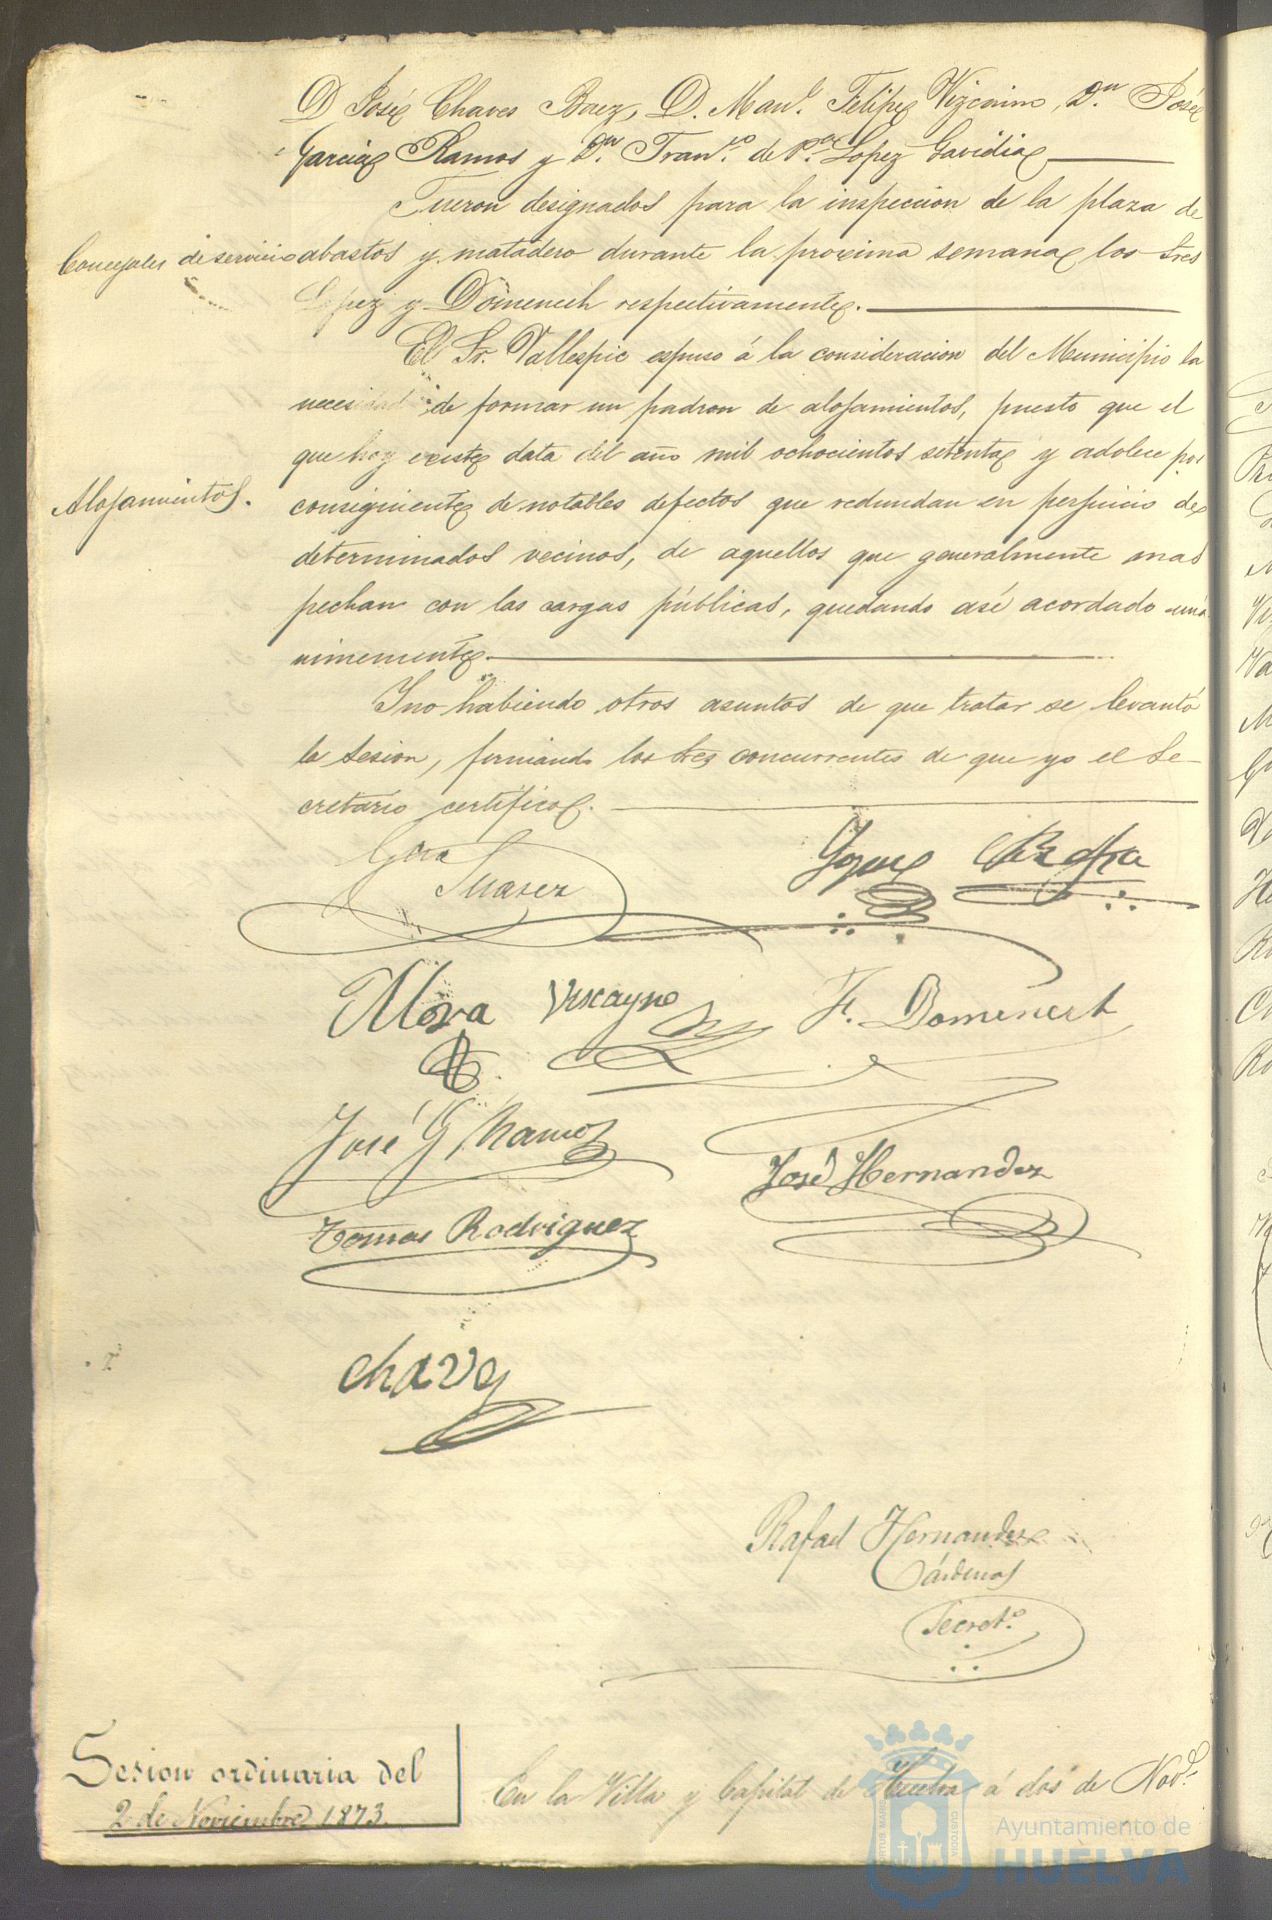 D José Chaves Baez, D. Man.l Felipe Vizcaino, D.n José
Garcia Ramos y D.n Fran.co de P.a Lopez Gavidia
Fueron designados para la inspeccion de la plaza de
Concejales de servicio
abastos y matadero durante la proxima semana los Sres
Lopez y Domenech respectivamente.
El Sr. Vallespic espuso á la consideracion del Municipio la
necesidad de formar un padron de alojamientos, puesto que el
que hoy existe data del año mil ochocientos setenta y adolece por
Alojamientos.
consiguiente de notables defectos que redundan en perjuicio de
determinados vecinos, de aquellos que generalmente mas
pechan con las cargas públicas, quedando asi acordado uná
nimemente.
Y no habiendo otros asuntos de que tratar se levantó
la sesion, firmando los Sres concurrentes de que yo el Se-
cretario certifico.
Suarez
Mora
Vizcayno
F. Domenech
José G Ramos
José Hernandez
Tomas Rodriguez
Chavez
Rafael Hernandez
Cárdenas
Secret.o
Sesion ordinaria del
2 de Noviembre 1873.
En la Villa y Capital de Huelva á dos de Nov.e
Ayuntamiento de
HUELVA